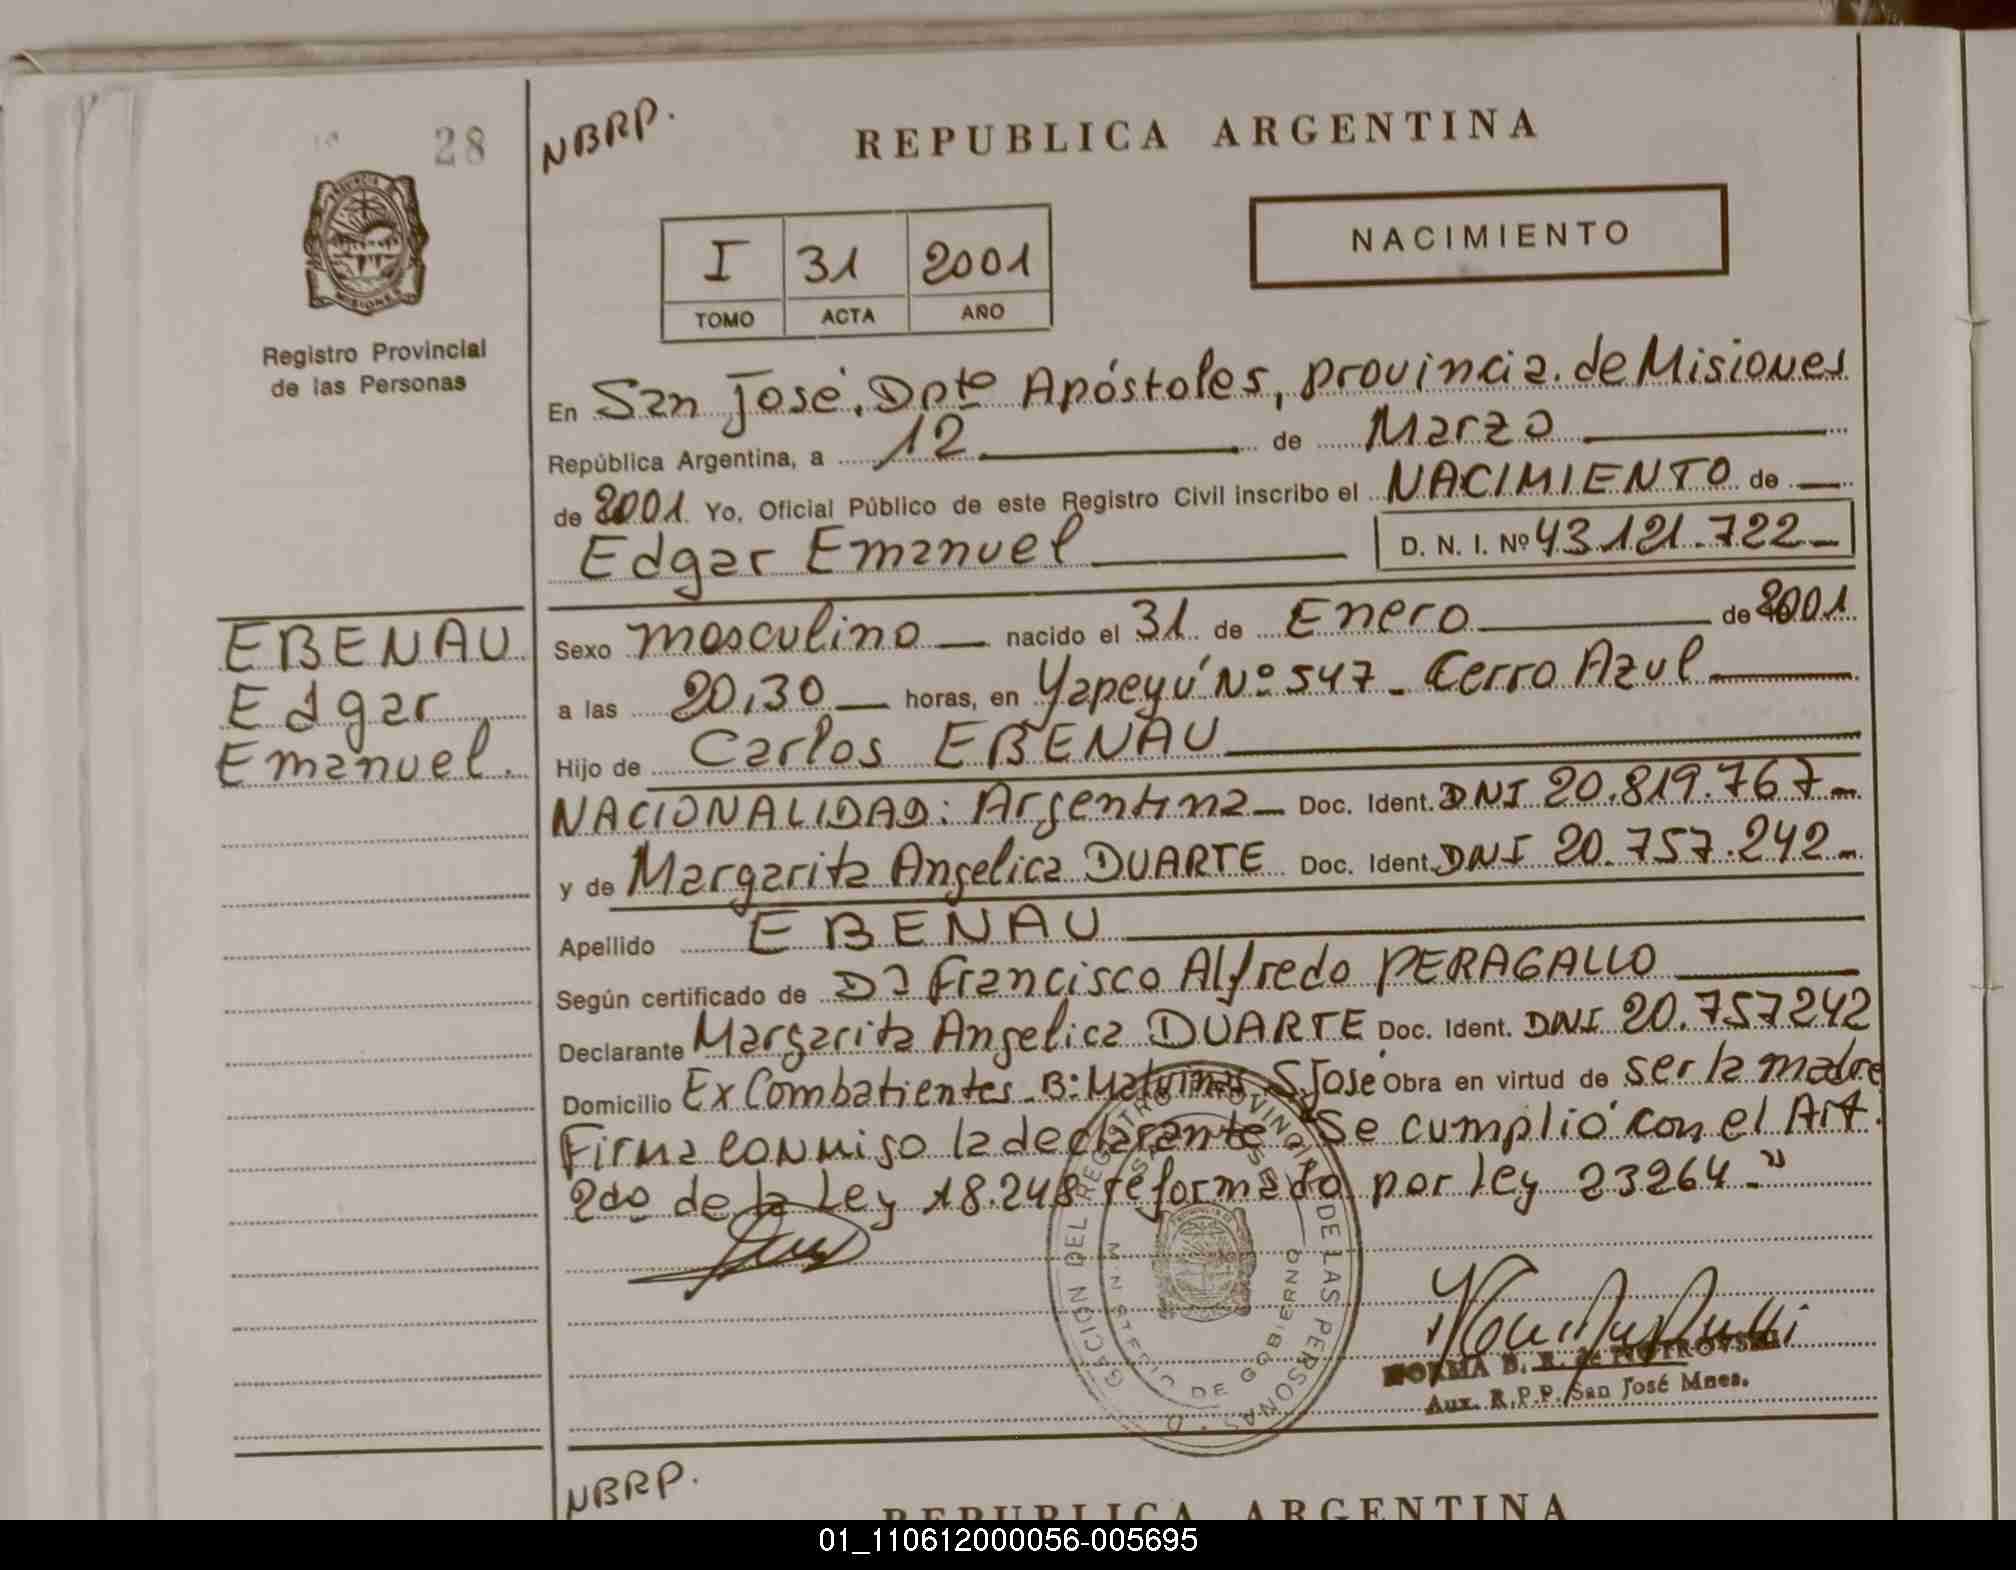 28
NBRP.
REPUBLICA ARGENTINA
PROVINCIA DE
MISIONES
I 31 2001
TOMO ACTA AÑO
NACIMIENTO
Registro Provincial
de las Personas
En San José. Dpto Apóstoles, provincia de Misiones
República Argentina, a 12 de Marzo
de 2001 Yo, Oficial Público de este Registro Civil inscribo el NACIMIENTO de
Edgar Emanuel D. N. I. Nº 43.121.722
EBENAU
Edgar
Emanuel.
Sexo masculino nacido el 31 de Enero de 2001
a las 20,30 horas, en Yapeyú Nº 547 - Cerro Azul
Hijo de Carlos EBENAU
NACIONALIDAD: Argentina Doc. Ident. DNI 20.819.767
y de Margarita Angelica DUARTE Doc. Ident. DNI 20.757.242
Apellido EBENAU
Según certificado de Francisco Alfredo PERAGALLO
Declarante Margarita Angelica DUARTE Doc. Ident. DNI 20.757242
Domicilio Ex Combatientes - B: Malvinas S. José Obra en virtud de ser la madre
Firma conmigo la declarante "Se cumplió con el Art.
2do de la Ley 18.248 reformado por Ley 23264-"
DEL REGISTRO PROVINCIAL DE LAS PERSONAS
MINISTERIO DE GOBIERNO
NORMA B. R. de PIOTROVSKI
Aux. R.P.P. San José Mnes.
NBRP.
REPUBLICA ARGENTINA
01_110612000056-005695